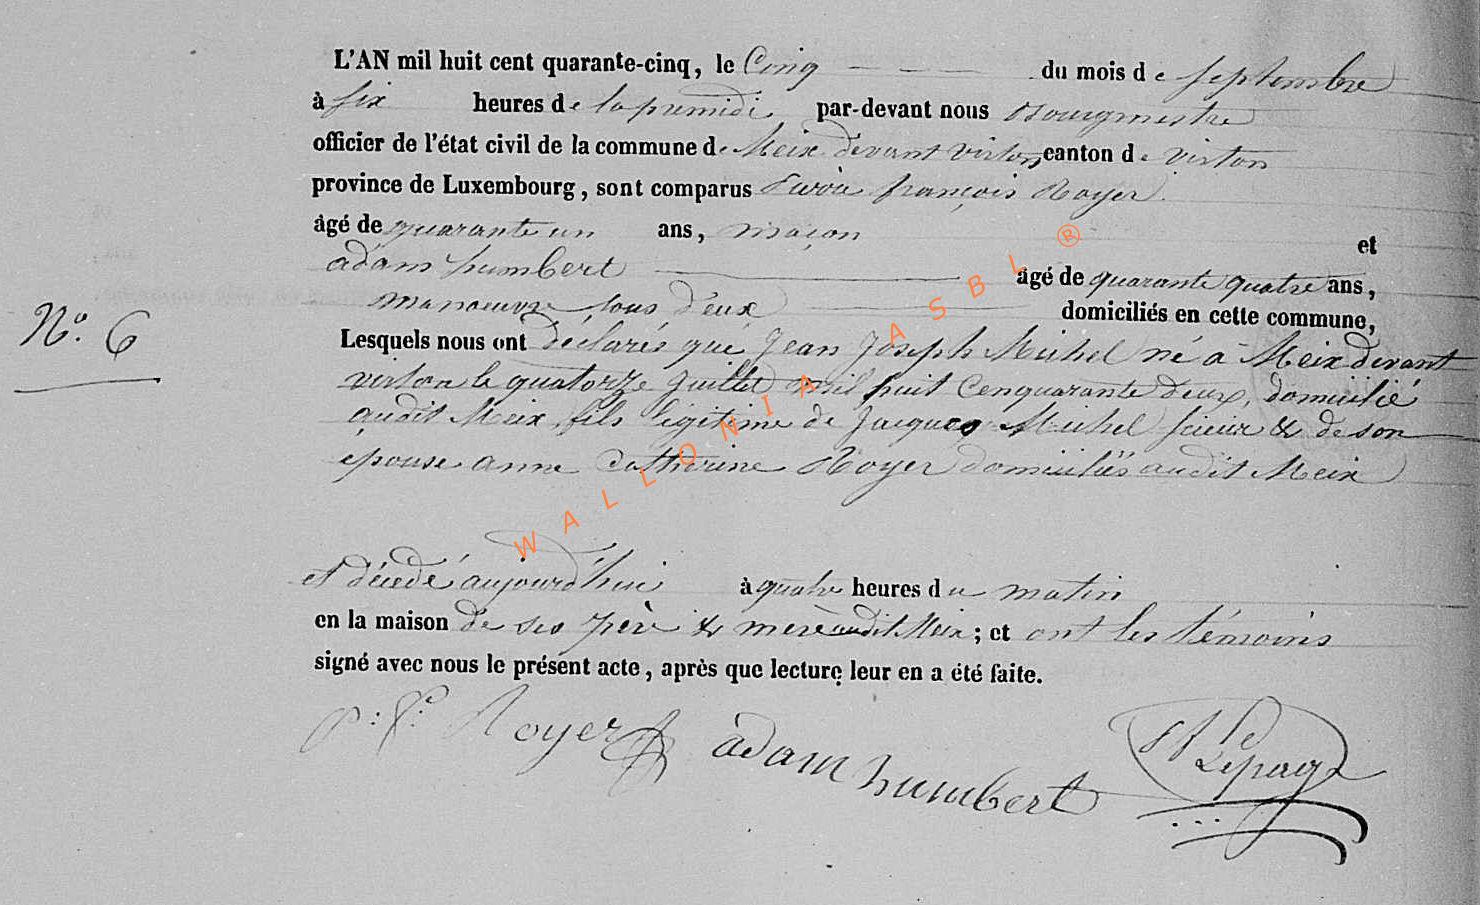 L'AN mil huit cent quarante-cinq, le Cinq du mois de septembre
à six heures de la premidi par-devant nous Bourgmestre
officier de l'état civil de la commune de Meix devant virton canton de virton
province de Luxembourg, sont comparus françois Royer
âgé de quarante un ans, maçon et
adam humbert âgé de quarante quatre ans,
manoeuvre, tous d'eux domiciliés en cette commune,
Lesquels nous ont déclarés que Jean Joseph Michel né à Meix devant
N° 6
virton le quatorze Juillet mil huit Cenquarante deux, domicilié
audit Meix, fils légitime de Jacques Michel scieur & de son
épouse anne Catherine Royer domiciliés audit Meix
et décédé aujourd'hui à quatre heures du matin
en la maison de ses père & mère audit Meix; et ont les témoins
signé avec nous le présent acte, après que lecture leur en a été faite.
p: f: Royer adam humbert Lepage
WALLONIA ASBL ®